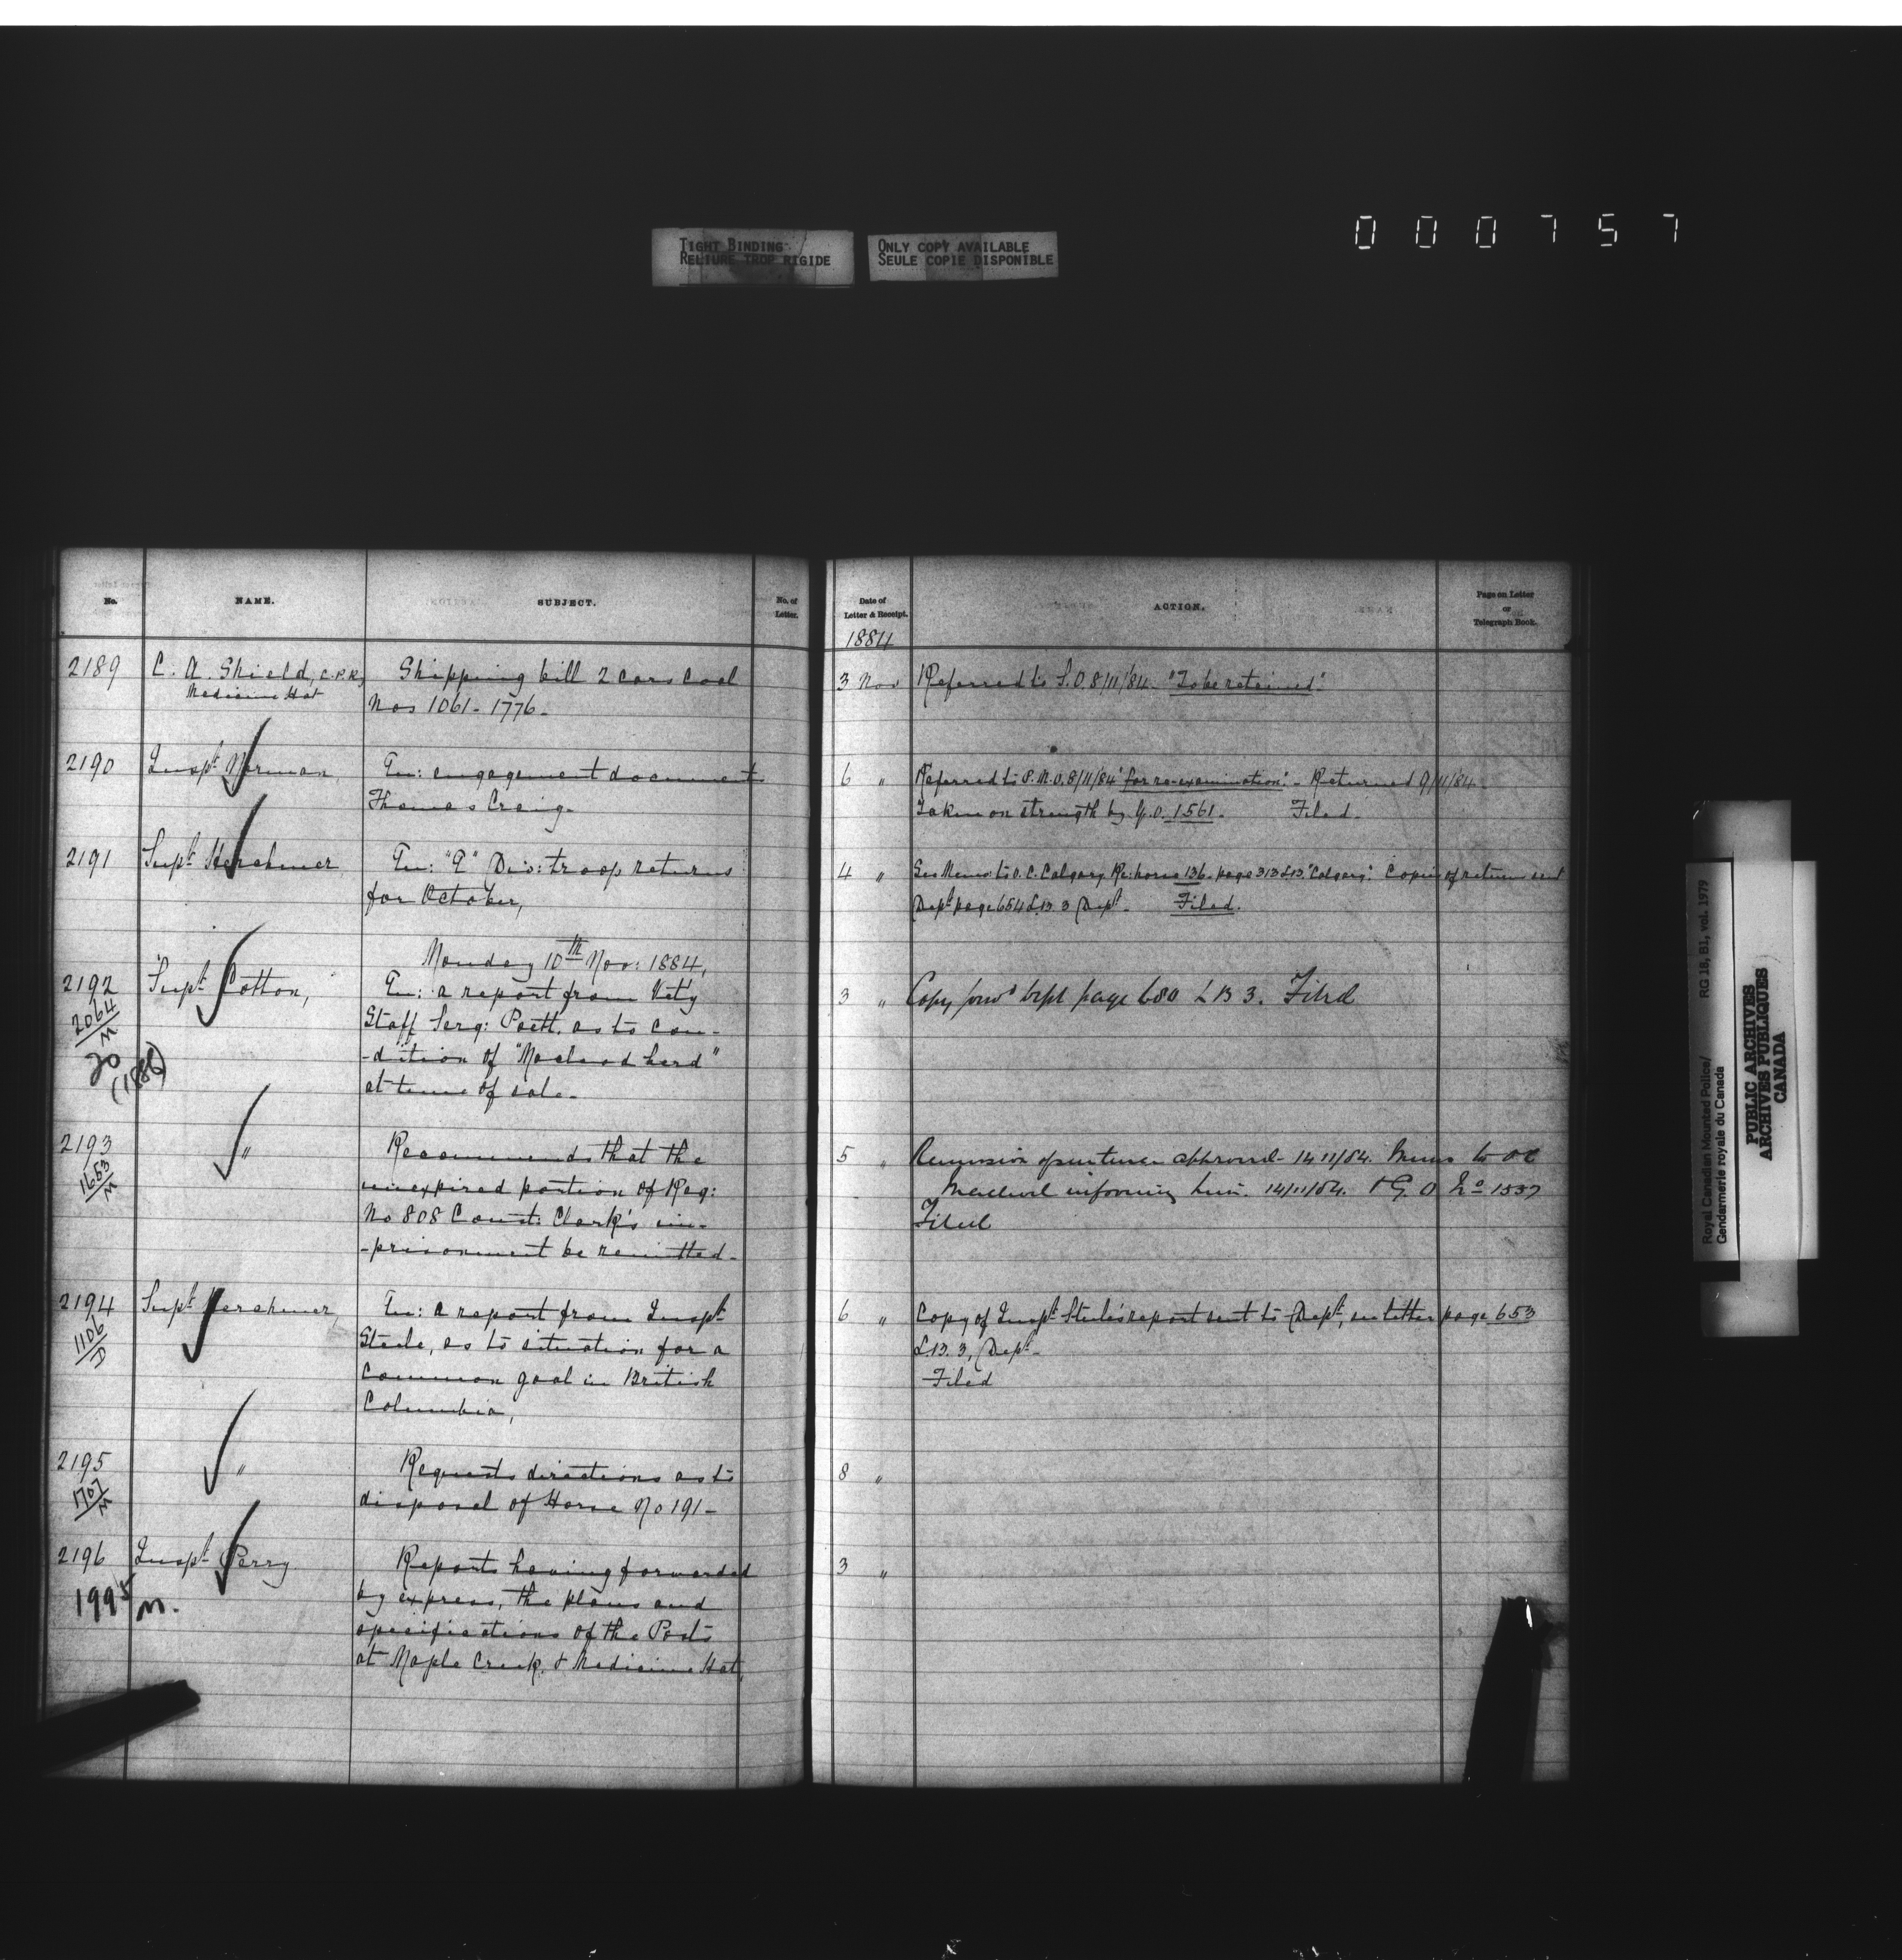 TIGHT BINDING
RELIURE TROP RIGIDE
ONLY COPY AVAILABLE
SEULE COPIE DISPONIBLE
000757
No.
NAME.
SUBJECT.
No. of
Letter.
Date of
Letter & Receipt.
ACTION.
Page on Letter
or
Telegraph Book.
1884
2189 C. A. Shield, C.P.R., Shipping bill 2 Cars Coal
Medicine Hat
Nos 1061-1776-
3 Nov Referred to S.O. 8/11/84. "To be retained".
2190 Inspt Norman, En: engagement document
Thomas Craig-
6 " Referred to S.M.O. 8/11/84 "for re-examination". - Returned 9/11/84-
Taken on strength by G.O. 1561. Filed.
2191 Supt Herchmer, En: "E" Div: troop returns
for October,
4 " See Memo: to O.C. Calgary Re: horse 136- page 313 L.B. "Calgary". Copies of return sent
Dept page 654 L.B. 3 Dept- Filed.
Monday 10th Nov: 1884,
2192 Supt Cotton, En: a report from Vety
2064
M
20
(1886)
Staff Serg: Poett, as to con-
-dition of "Macleod herd"
at time of sale-
3 " Copy forwd Dept page 680 LB 3. Filed
2193 " Recommends that the
1653
M
unexpired portion of Reg:
No 808 Const: Clark's im-
-prisonment be remitted-
5 " Remission of sentence approved- 14 11/84. Memo to OC
Macleod informing him. 14/11/84. & G. O No 1557
Filed
2194 Supt Herchmer, En: a report from Inspt
1106
D
Steele, as to situation for a
Common gaol in British
Columbia,
6 " Copy of Inspt Steele's report sent to Dept, in letter page 653
L.B. 3, Dept-
Filed
2195 " Requests directions as to
1707
M
disposal of Horse No 191-
8 "
2196 Inspt Perry Reports having forwarded
1995
M.
by express, the plans and
specifications of the Posts
at Maple Creek & Medicine Hat,
3 "
Royal Canadian Mounted Police/
Gendarmerie royale du Canada
RG 18, B1, vol. 1979
PUBLIC ARCHIVES
ARCHIVES PUBLIQUES
CANADA